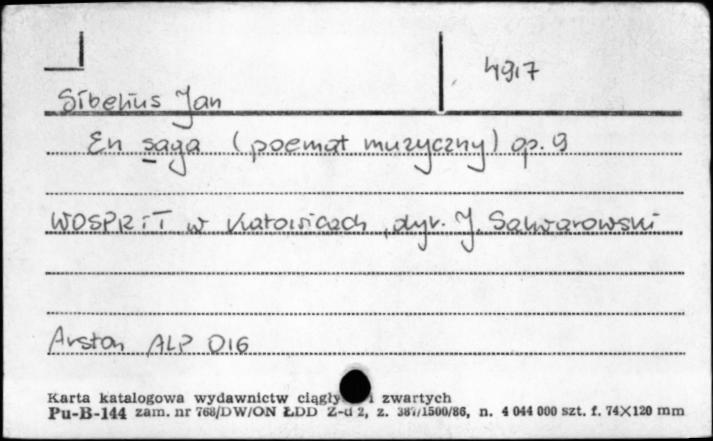 4917
Sibelius Jan
En saga (poemat muzyczny) op. 9
WOSPRiT w Katowicach, dyr. J. Salwarowski
Arston ALP 016
Karta katalogowa wydawnictw ciągły i zwartych
Pu-B-144 zam. nr 768/DW/ON ŁDD Z-d 2, z. 387/1500/86, n. 4 044 000 szt. f. 74×120 mm